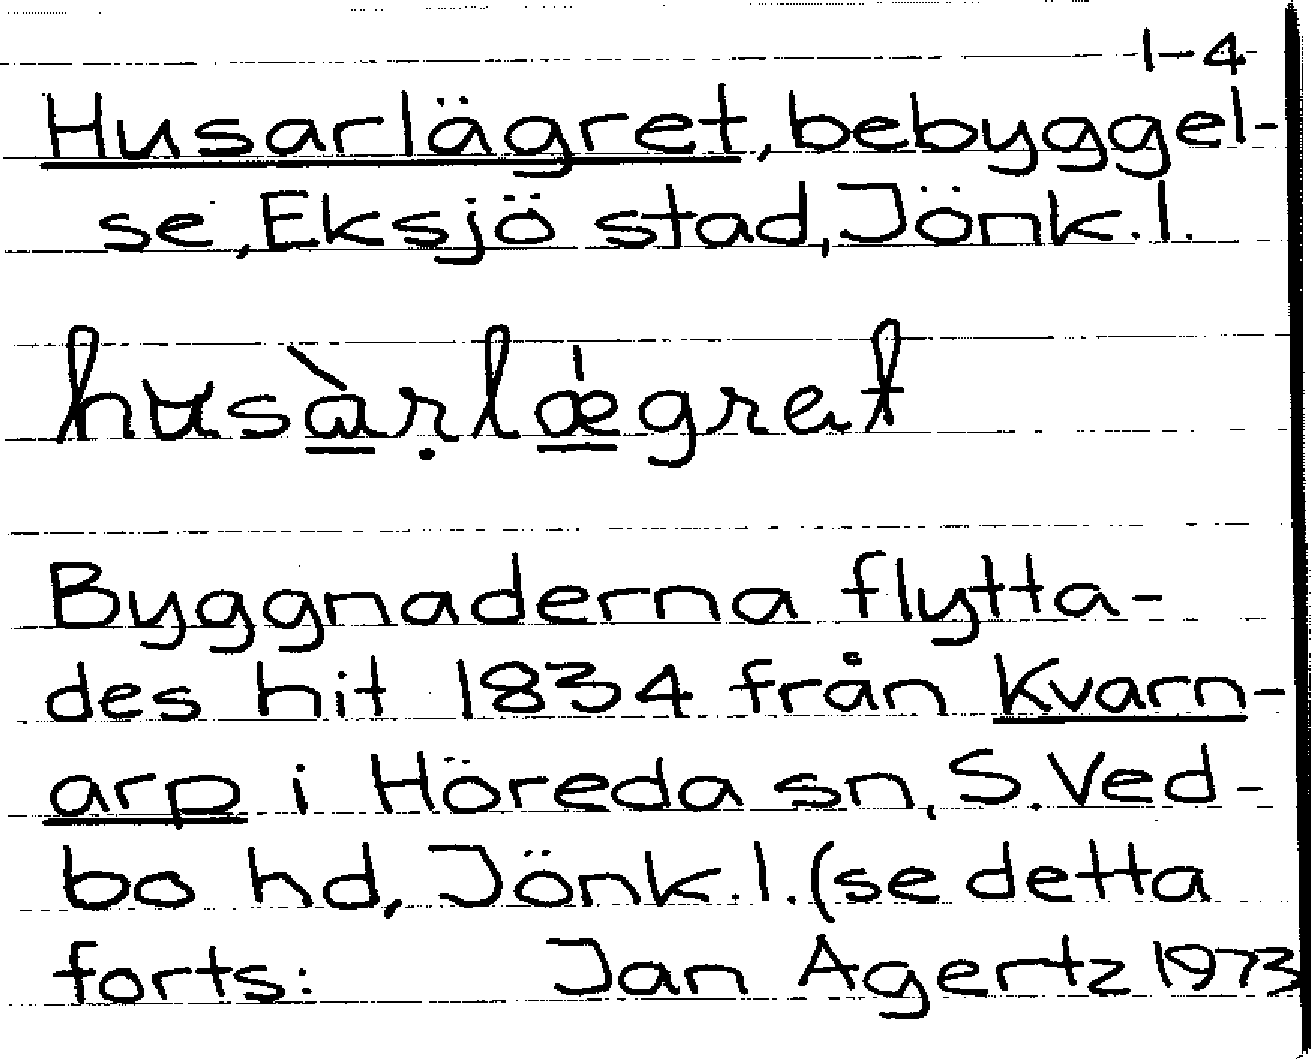 1-4
Husarlägret, bebyggel-
se, Eksjö stad, Jönk.l.
husàṛlǽgrət
Byggnaderna flytta-
des hit 1834 från Kvarn-
arp i Höreda sn, S. Ved-
bo hd, Jönk.l. (se detta
forts: Jan Agertz 1973